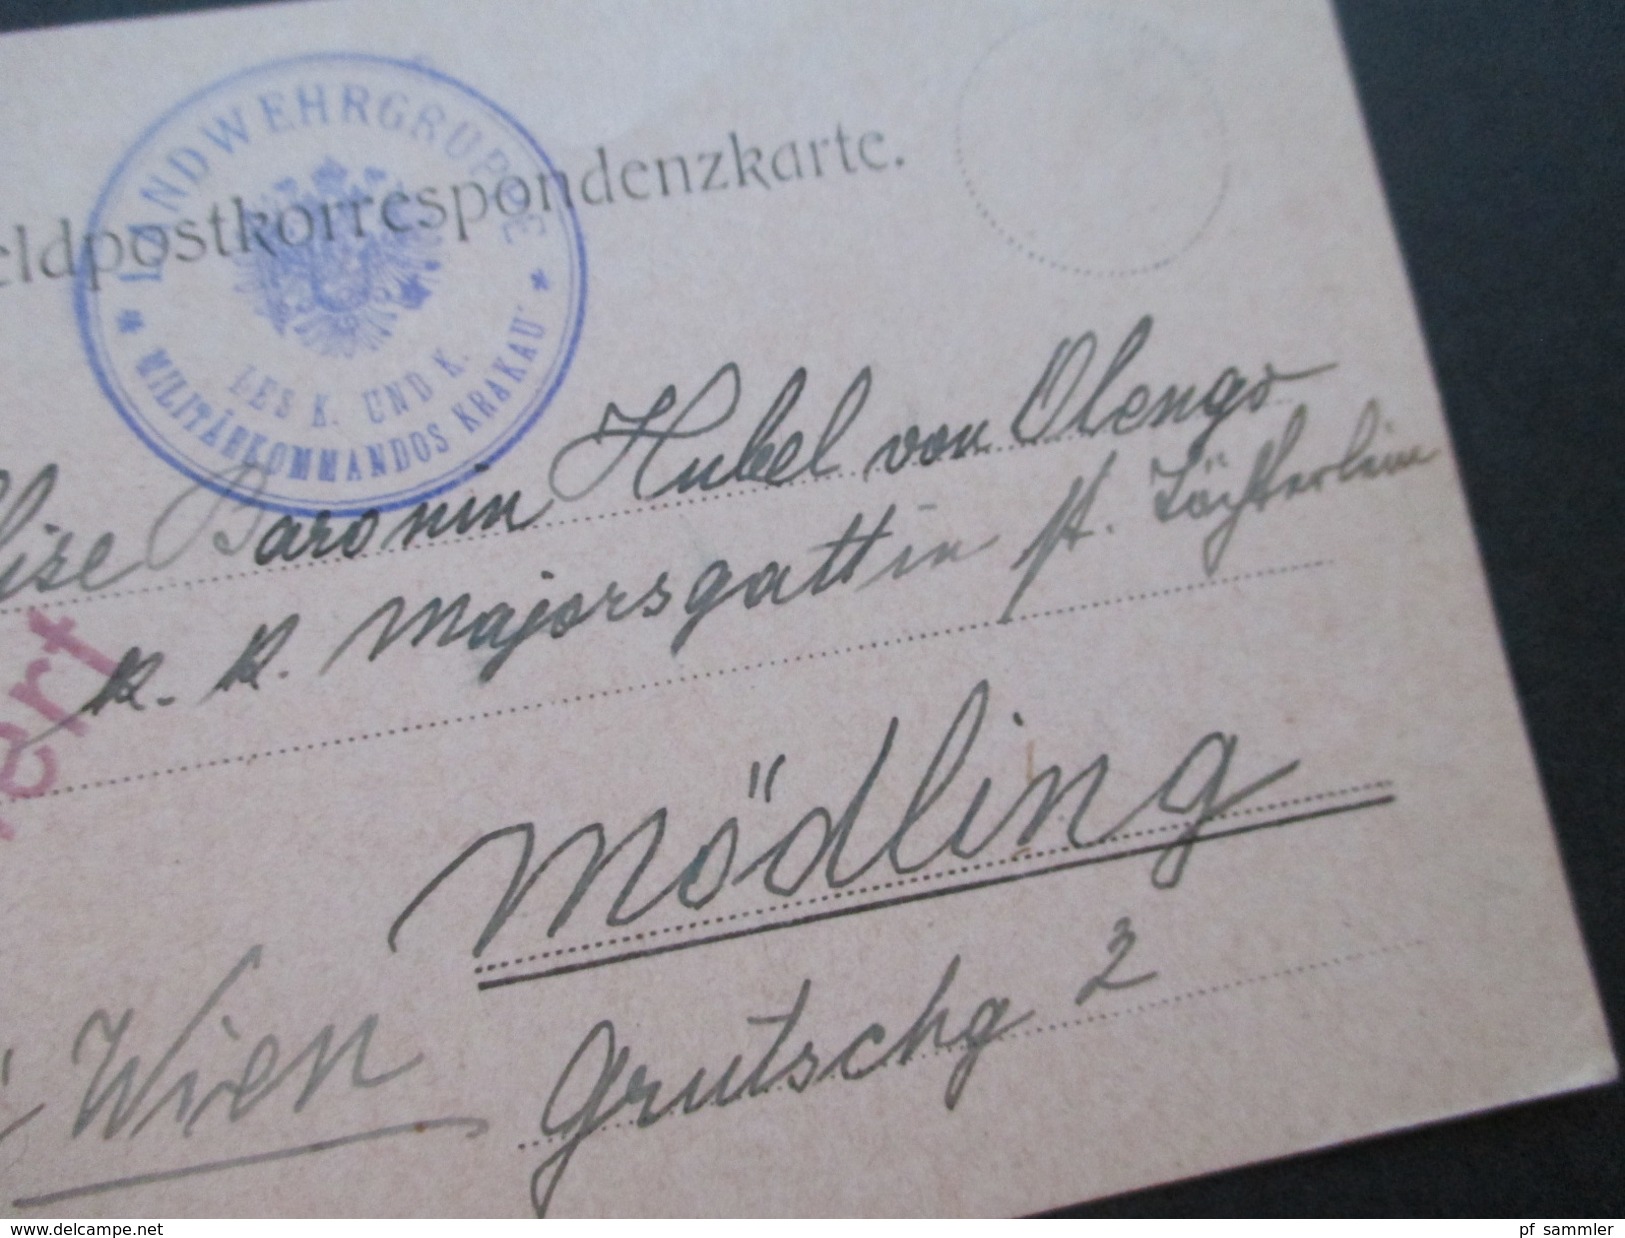 LANDWEHRGRUPPE
DES K. UND K.
* MILITÄRKOMMANDOS KRAKAU *
eldpostkorrespondenzkarte.
lise Baronin Hubel von Olengo
k. k. Majorsgattin st. Töchterlein
ert
Mödling
Wien
Grutschg 2
www.delcampe.net
pf_sammler